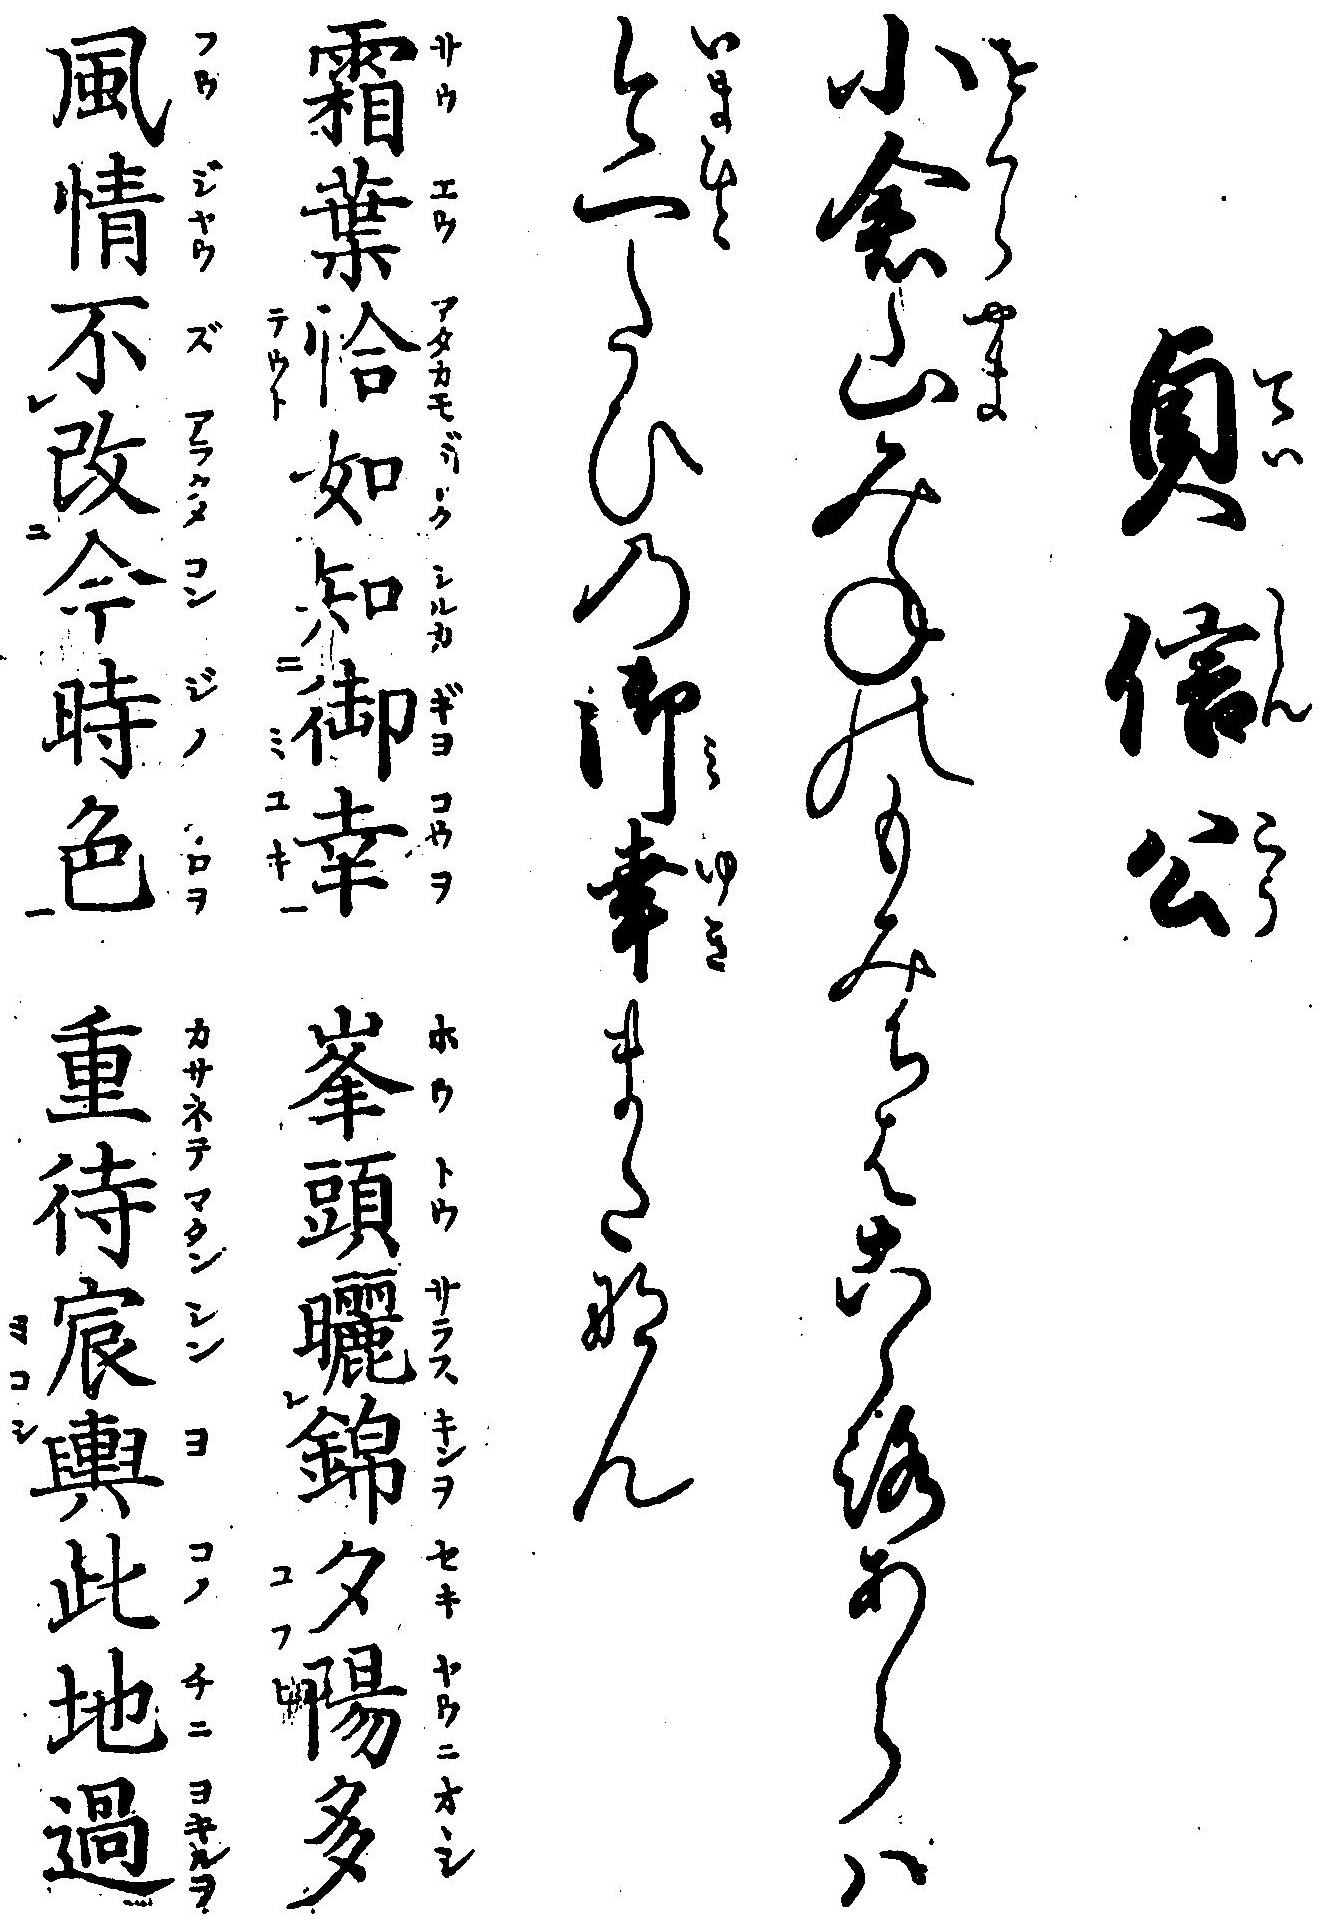 貞信公
小倉山みねのもみちはこゝろあらバ
今一たひの御幸またなん
霜葉恰如知御幸 峯頭曬錦夕陽多
風情不改今時色 重待宸輿此地過